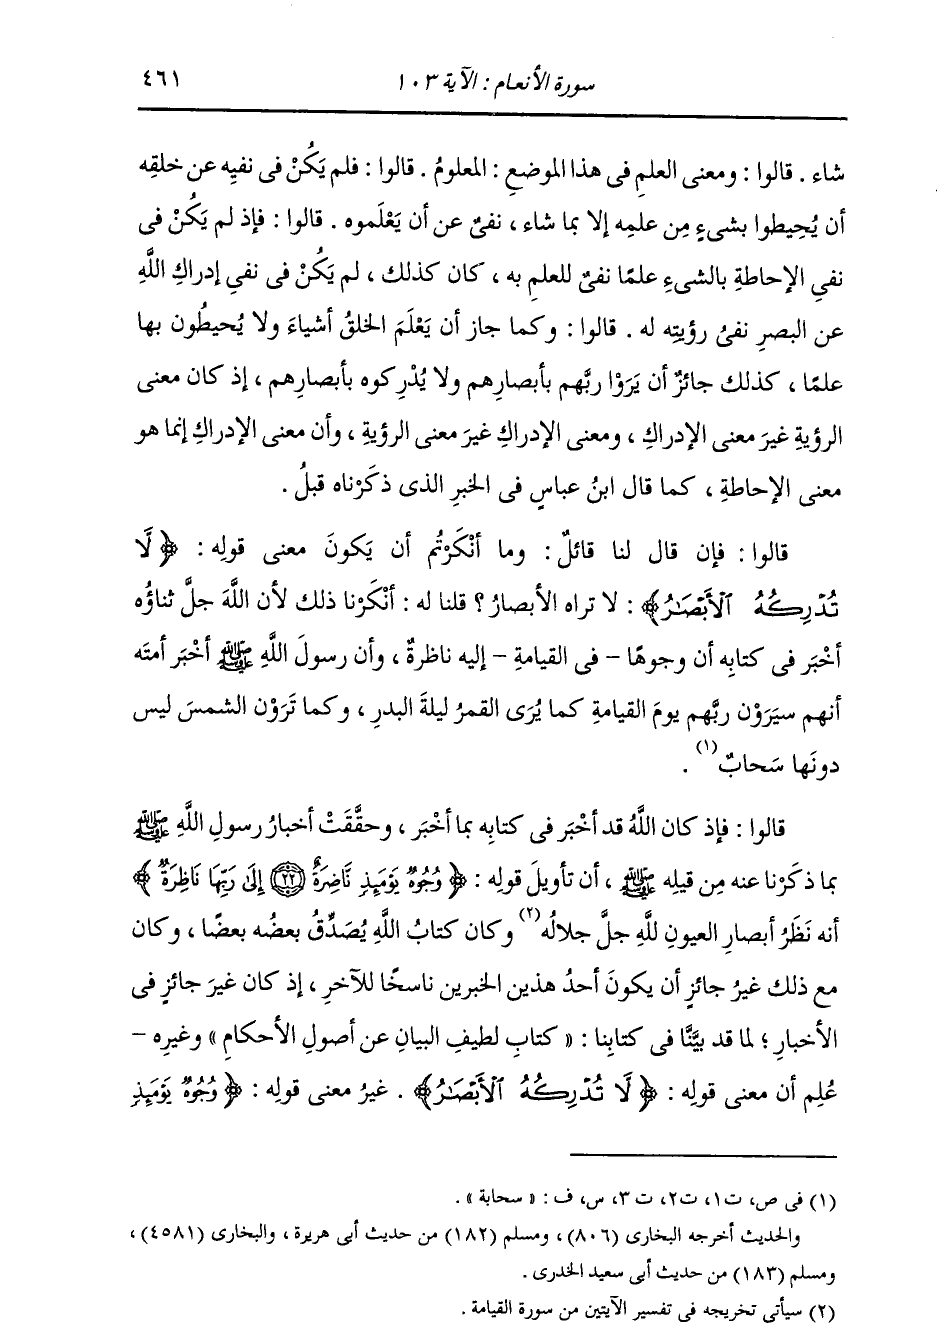 سورة الأنعام : الآية ١٠٣ ٤٦١
شاء . قالوا : ومعنى العلمِ فى هذا الموضعِ : المعلومُ . قالوا : فلم يَكُنْ فى نفيِه عن خلقِه
أن يُحِيطوا بشىءٍ مِن علمِه إلا بما شاء ، نفىٌ عن أن يَعْلَموه . قالوا : فإذ لم يَكُنْ فى
نفىِ الإحاطةِ بالشىءِ علمًا نفىٌ للعلمِ به ، كان كذلك ، لم يَكُنْ فى نفىِ إدراكِ اللَّهِ
عن البصرِ نفىُ رؤيتِه له . قالوا : وكما جاز أن يَعْلَمَ الخلقُ أشياءَ ولا يُحيطُون بها
علمًا ، كذلك جائزٌ أن يَرَوْا ربَّهم بأبصارِهم ولا يُدْرِكوه بأبصارِهم ، إذ كان معنى
الرؤيةِ غيرَ معنى الإدراكِ ، ومعنى الإدراكِ غيرَ معنى الرؤيةِ ، وأن معنى الإدراكِ إنما هو
معنى الإحاطةِ ، كما قال ابنُ عباسٍ فى الخبرِ الذى ذكَرْناه قبلُ .
قالوا : فإن قال لنا قائلٌ : وما أنْكَرْتُم أن يَكونَ معنى قولِه : ﴿ لَّا
تُدْرِكُهُ ٱلْأَبْصَٰرُ ﴾ : لا تراه الأبصارُ ؟ قلنا له : أنْكَرْنا ذلك لأن اللَّهَ جلَّ ثناؤُه
أخْبَر فى كتابِه أن وجوهًا - فى القيامةِ - إليه ناظرةٌ ، وأن رسولَ اللَّهِ ﷺ أخْبَر أمتَه
أنهم سيَرَوْن ربَّهم يومَ القيامةِ كما يُرَى القمرُ ليلةَ البدرِ ، وكما تَرَوْن الشمسَ ليس
دونَها سَحابٌ (١) .
قالوا : فإذ كان اللَّهُ قد أخْبَر فى كتابِه بما أخْبَر ، وحقَّقَتْ أخبارُ رسولِ اللَّهِ ﷺ
بما ذكَرْنا عنه مِن قيلِه ﷺ ، أن تأويلَ قولِه : ﴿ وُجُوهٌ يَوْمَئِذٍ نَّاضِرَةٌ ٢٢ إِلَىٰ رَبِّهَا نَاظِرَةٌ ﴾
أنه نَظَرُ أبصارِ العيونِ للَّهِ جلَّ جلالُه (٢) وكان كتابُ اللَّهِ يُصَدِّقُ بعضُه بعضًا ، وكان
مع ذلك غيرُ جائزٍ أن يكونَ أحدُ هذين الخبرين ناسخًا للآخرِ ، إذ كان غيرَ جائزٍ فى
الأخبارِ ؛ لما قد بيَّنَّا فى كتابِنا : « كتابِ لطيفِ البيانِ عن أصولِ الأحكامِ » وغيرِه -
عُلِم أن معنى قولِه : ﴿ لَّا تُدْرِكُهُ ٱلْأَبْصَٰرُ ﴾ . غيرُ معنى قولِه : ﴿ وُجُوهٌ يَوْمَئِذٍ
(١) فى ص، ت١، ت٢، ت٣، س، ف : « سحابة » .
والحديث أخرجه البخارى (٨٠٦) ، ومسلم (١٨٢) من حديث أبى هريرة ، والبخارى (٤٥٨١) ،
ومسلم (١٨٣) من حديث أبى سعيد الخدرى .
(٢) سيأتى تخريجه فى تفسير الآيتين من سورة القيامة .